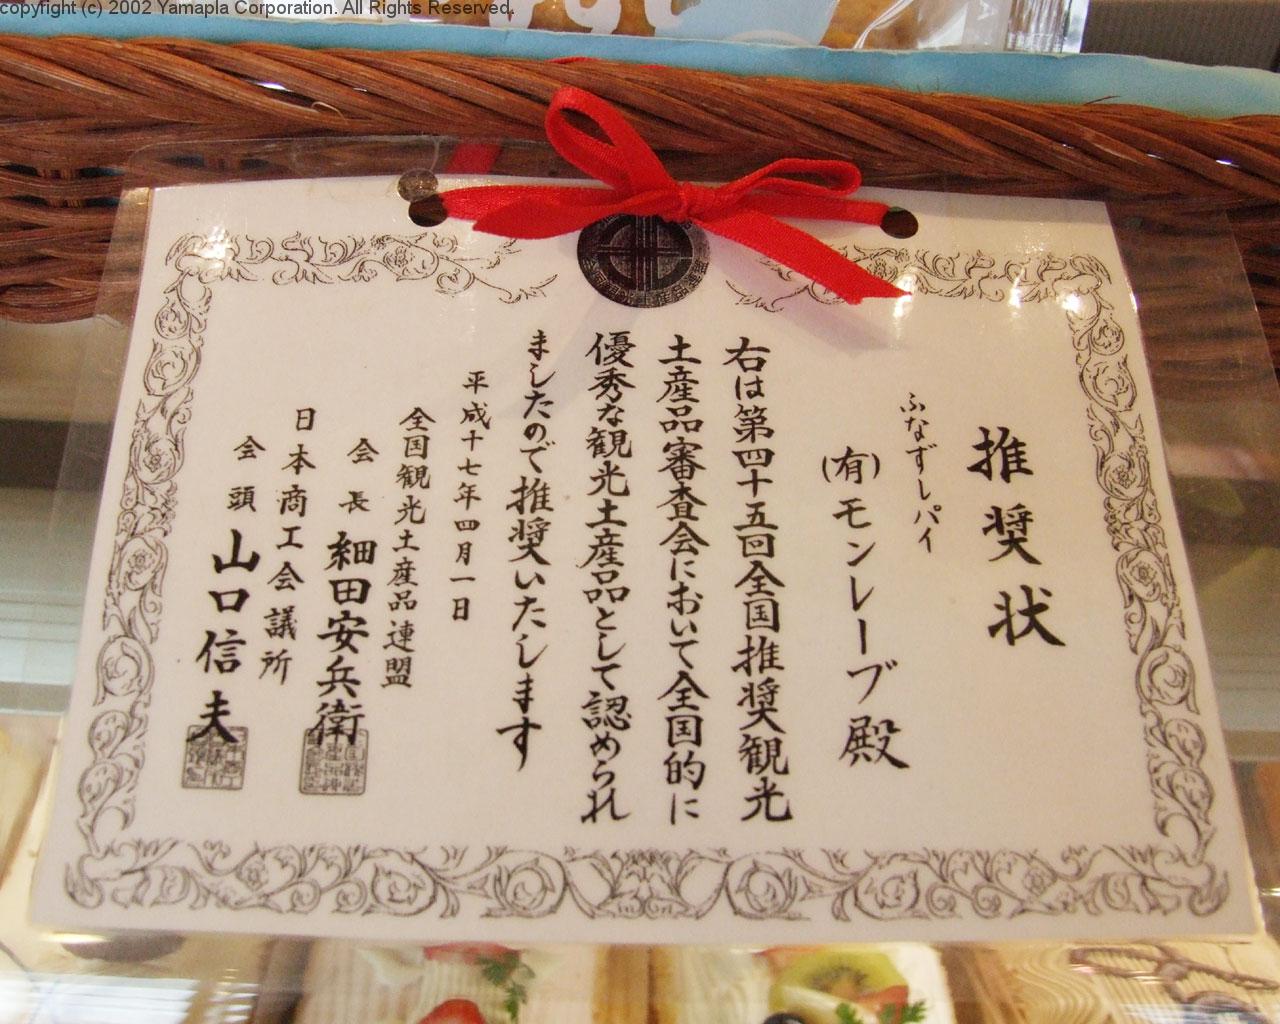 copyright (c) 2002 Yamapla Corporation. All Rights Reserved.
推奨状
ふなずしパイ
(有)モンレーブ殿
右は第四十五回全国推奨観光
土産品審査会において全国的に
優秀な観光土産品として認められ
ましたので推奨いたします
平成十七年四月一日
全国観光土産品連盟
会長 細田安兵衛
日本商工会議所
会頭 山口信夫